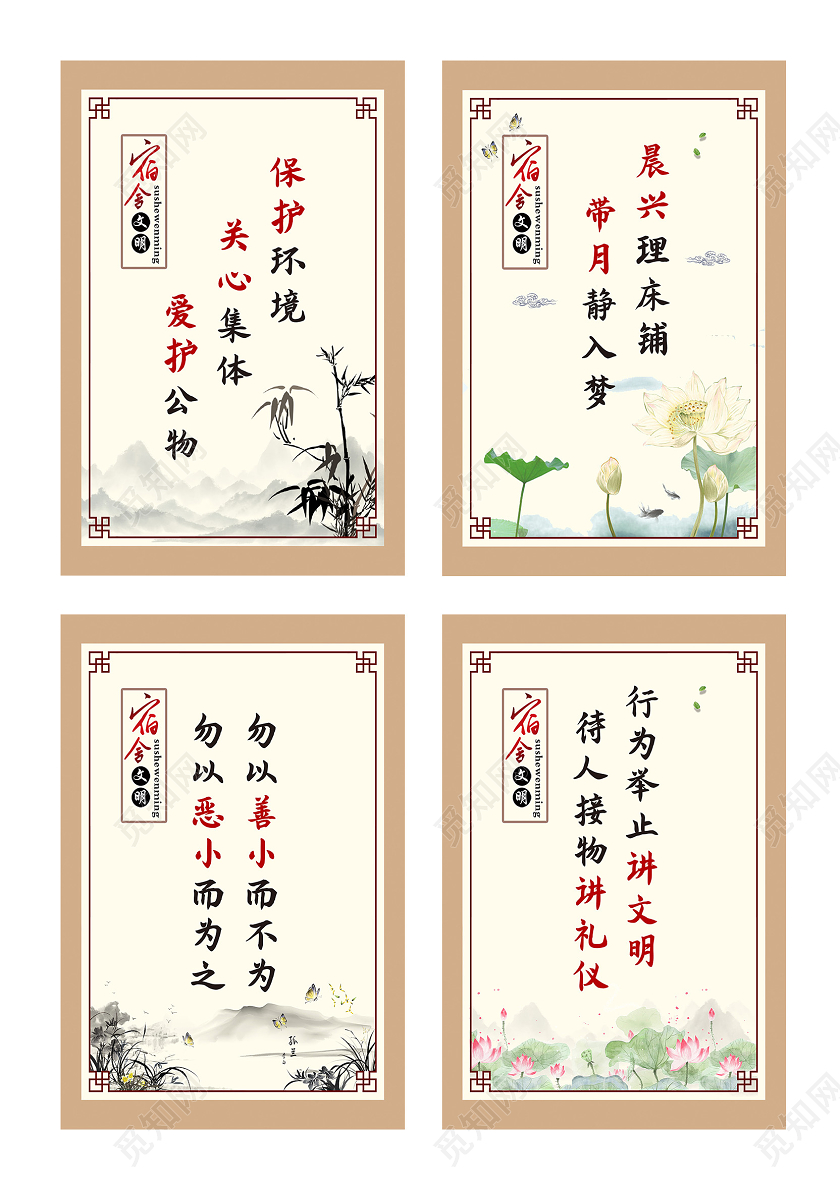 宿舍文明
sushewenming
保护环境
关心集体
爱护公物
宿舍文明
sushewenming
晨兴理床铺
带月静入梦
宿舍文明
sushewenming
勿以善小而不为
勿以恶小而为之
孤兰
宿舍文明
sushewenming
行为举止讲文明
待人接物讲礼仪
觅知网